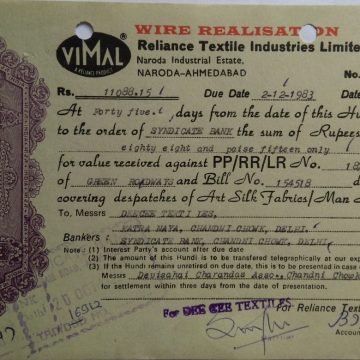 WIRE REALISATION
VIMAL
A RELIANCE PRODUCT
Reliance Textile Industries Limite
Naroda Industrial Estate,
NARODA-AHMEDABAD
No.
Rs. 11088.15 Due Date 2-12-1983
At Forty five days from the date of this Hu
to the order of SYNDICATE BANK the sum of Rupees
eighty eight and paise fifteen only
for value received against PP/RR/LR No. 18
of GREEN ROADWAYS and Bill No. 154518 d
covering despatches of Art Silk Fabrics/Man
To: Messrs DEECEE TEXTI LES,
KATRA NAYA, CHANDNI CHOWK, DELHI.
Bankers : SYNDICATE BANK, CHANDNI CHOWK, DELHI
Note : (1) Interest Party's account after due date
(2) The amount of this Hundi to be transfered telegraphically at our exp
(3) If the Hundi remains unretired on due date, this to be presented in case o
Messrs Devisahai Charandas Asso. Chandni Chowk
for settlement within three days from the date of presentation.
For DEE CEE TEXTILES
For Reliance Texti
16912